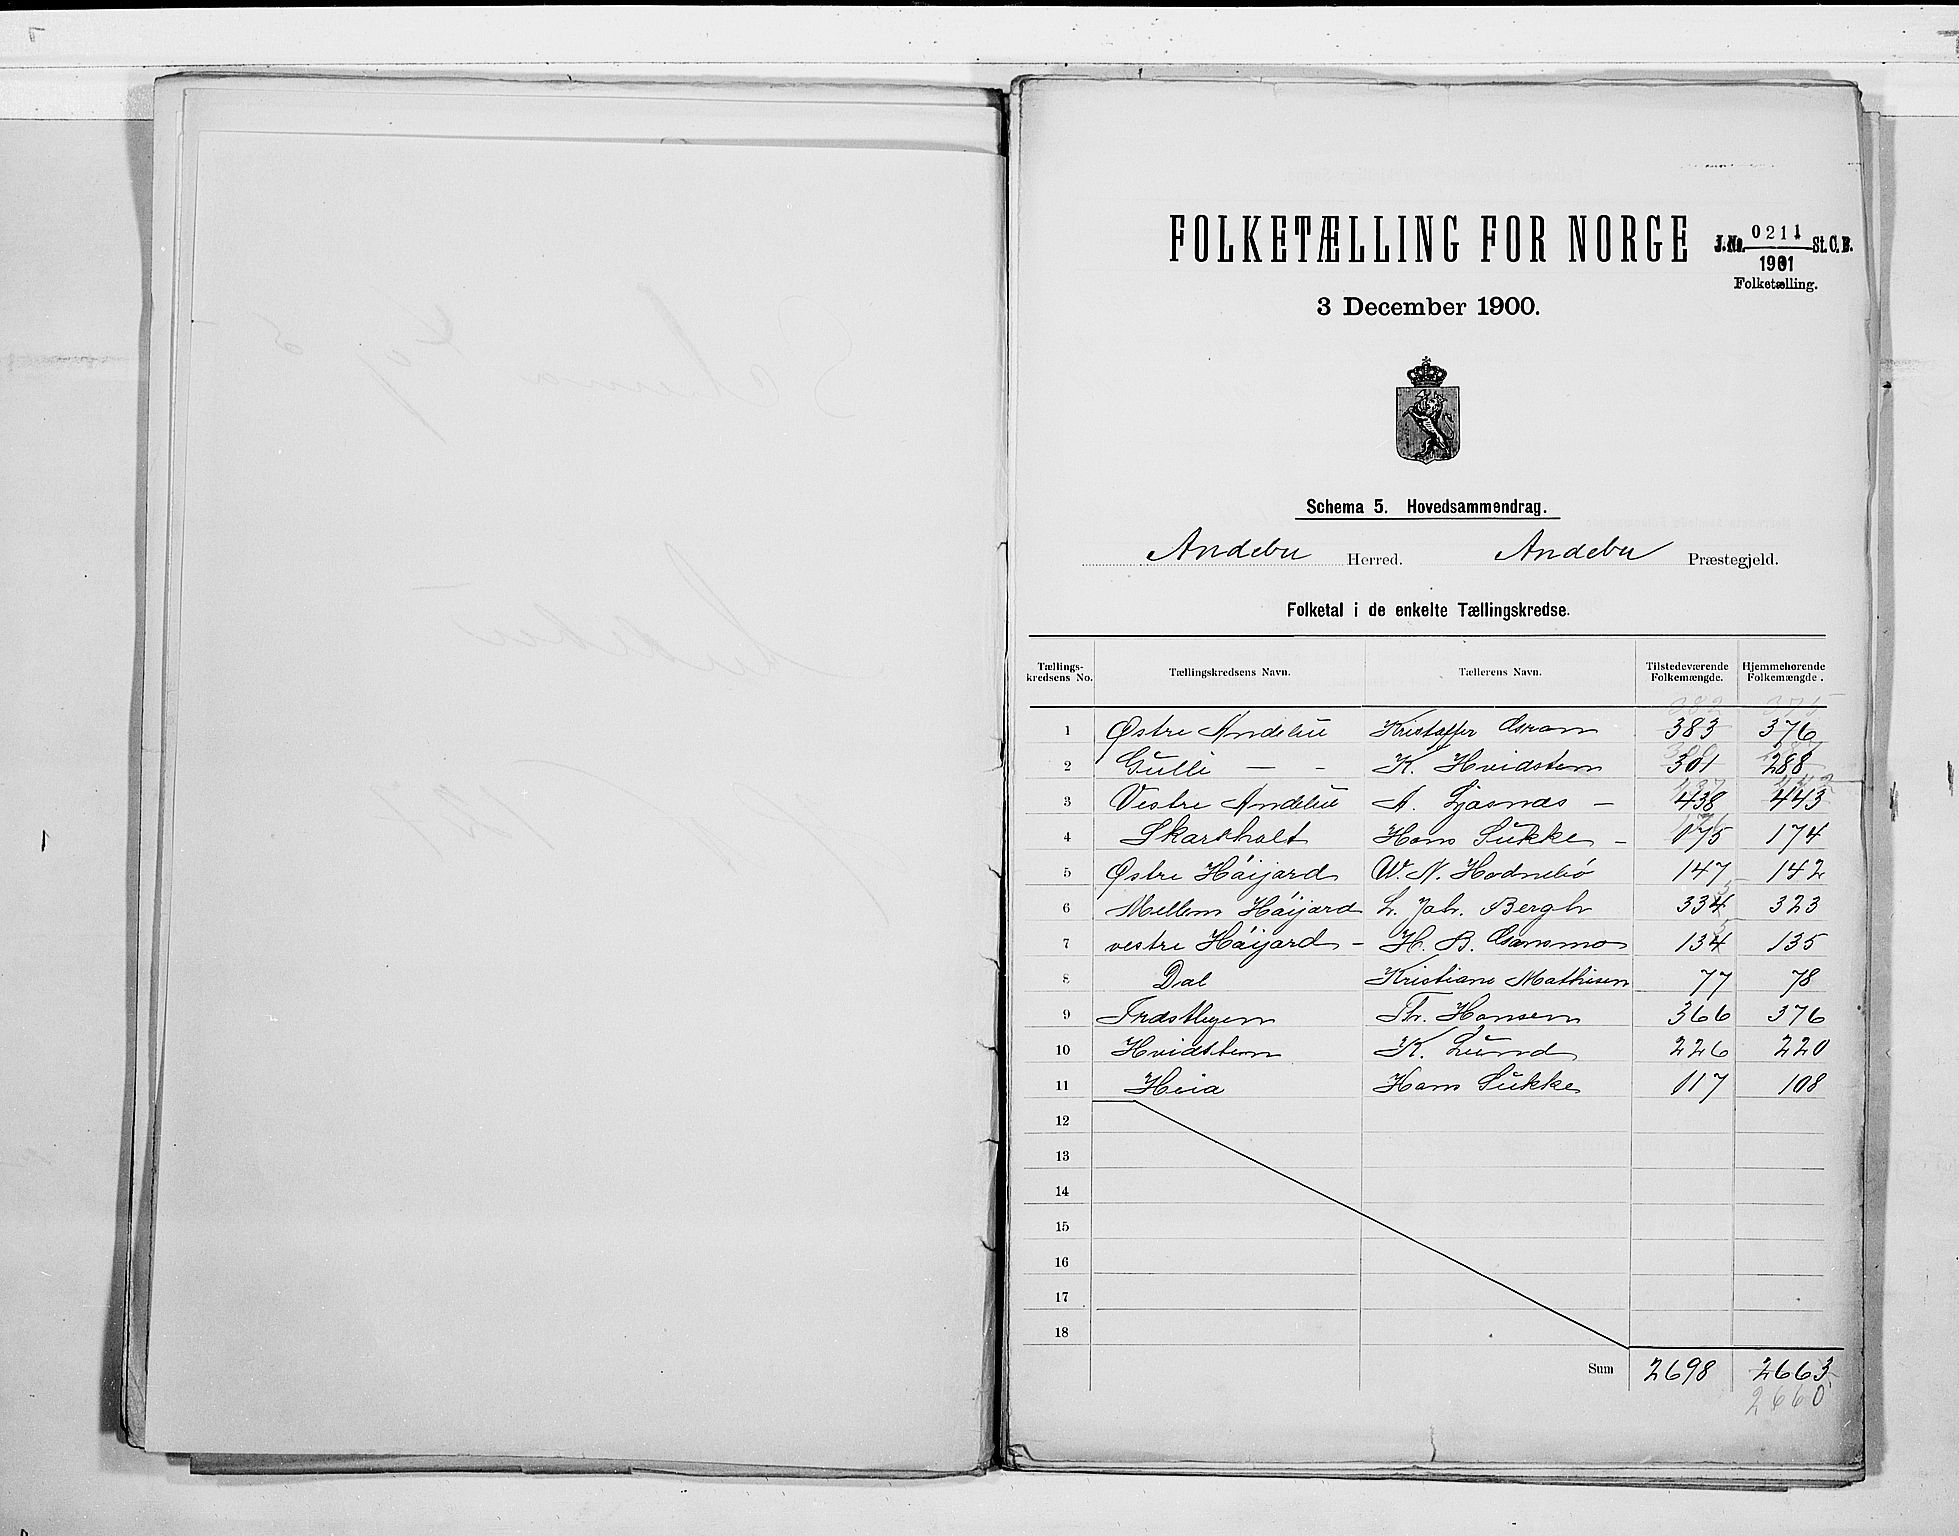 FOLKETÆLLING FOR NORGE
J.No. 0211 St. C. B.
1901
Folketælling.
3 December 1900.
Schema 5. Hovedsammendrag.
Andebu Herred. Andebu Præstegjeld.
Folketal i de enkelte Tællingskredse.
Tællings-kredsens No. Tællingskredsens Navn. Tællerens Navn. Tilstedeværende Folkemængde. Hjemmehørende Folkemængde.
1 Østre Andebu Kristoffer 383 376
2 Gulli — - K. Hvidsten 301 288
3 Vestre Andebu A. — 438 443
4 Skarsholt Hans Sukke - 175 174
5 Østre Høijord W. N. Hodnebø 147 142
6 Mellem Høijord L. Joh. Bergh 334 323
7 vestre Høijord - H. B. 134 135
8 Dal Kristians Mathisen 77 78
9 Th. Hansen 366 376
10 Hvidsten K. Lund 226 220
11 Heia Hans Sukke 117 108
12
13
14
15
16
17
18
Sum 2698 2663
2660